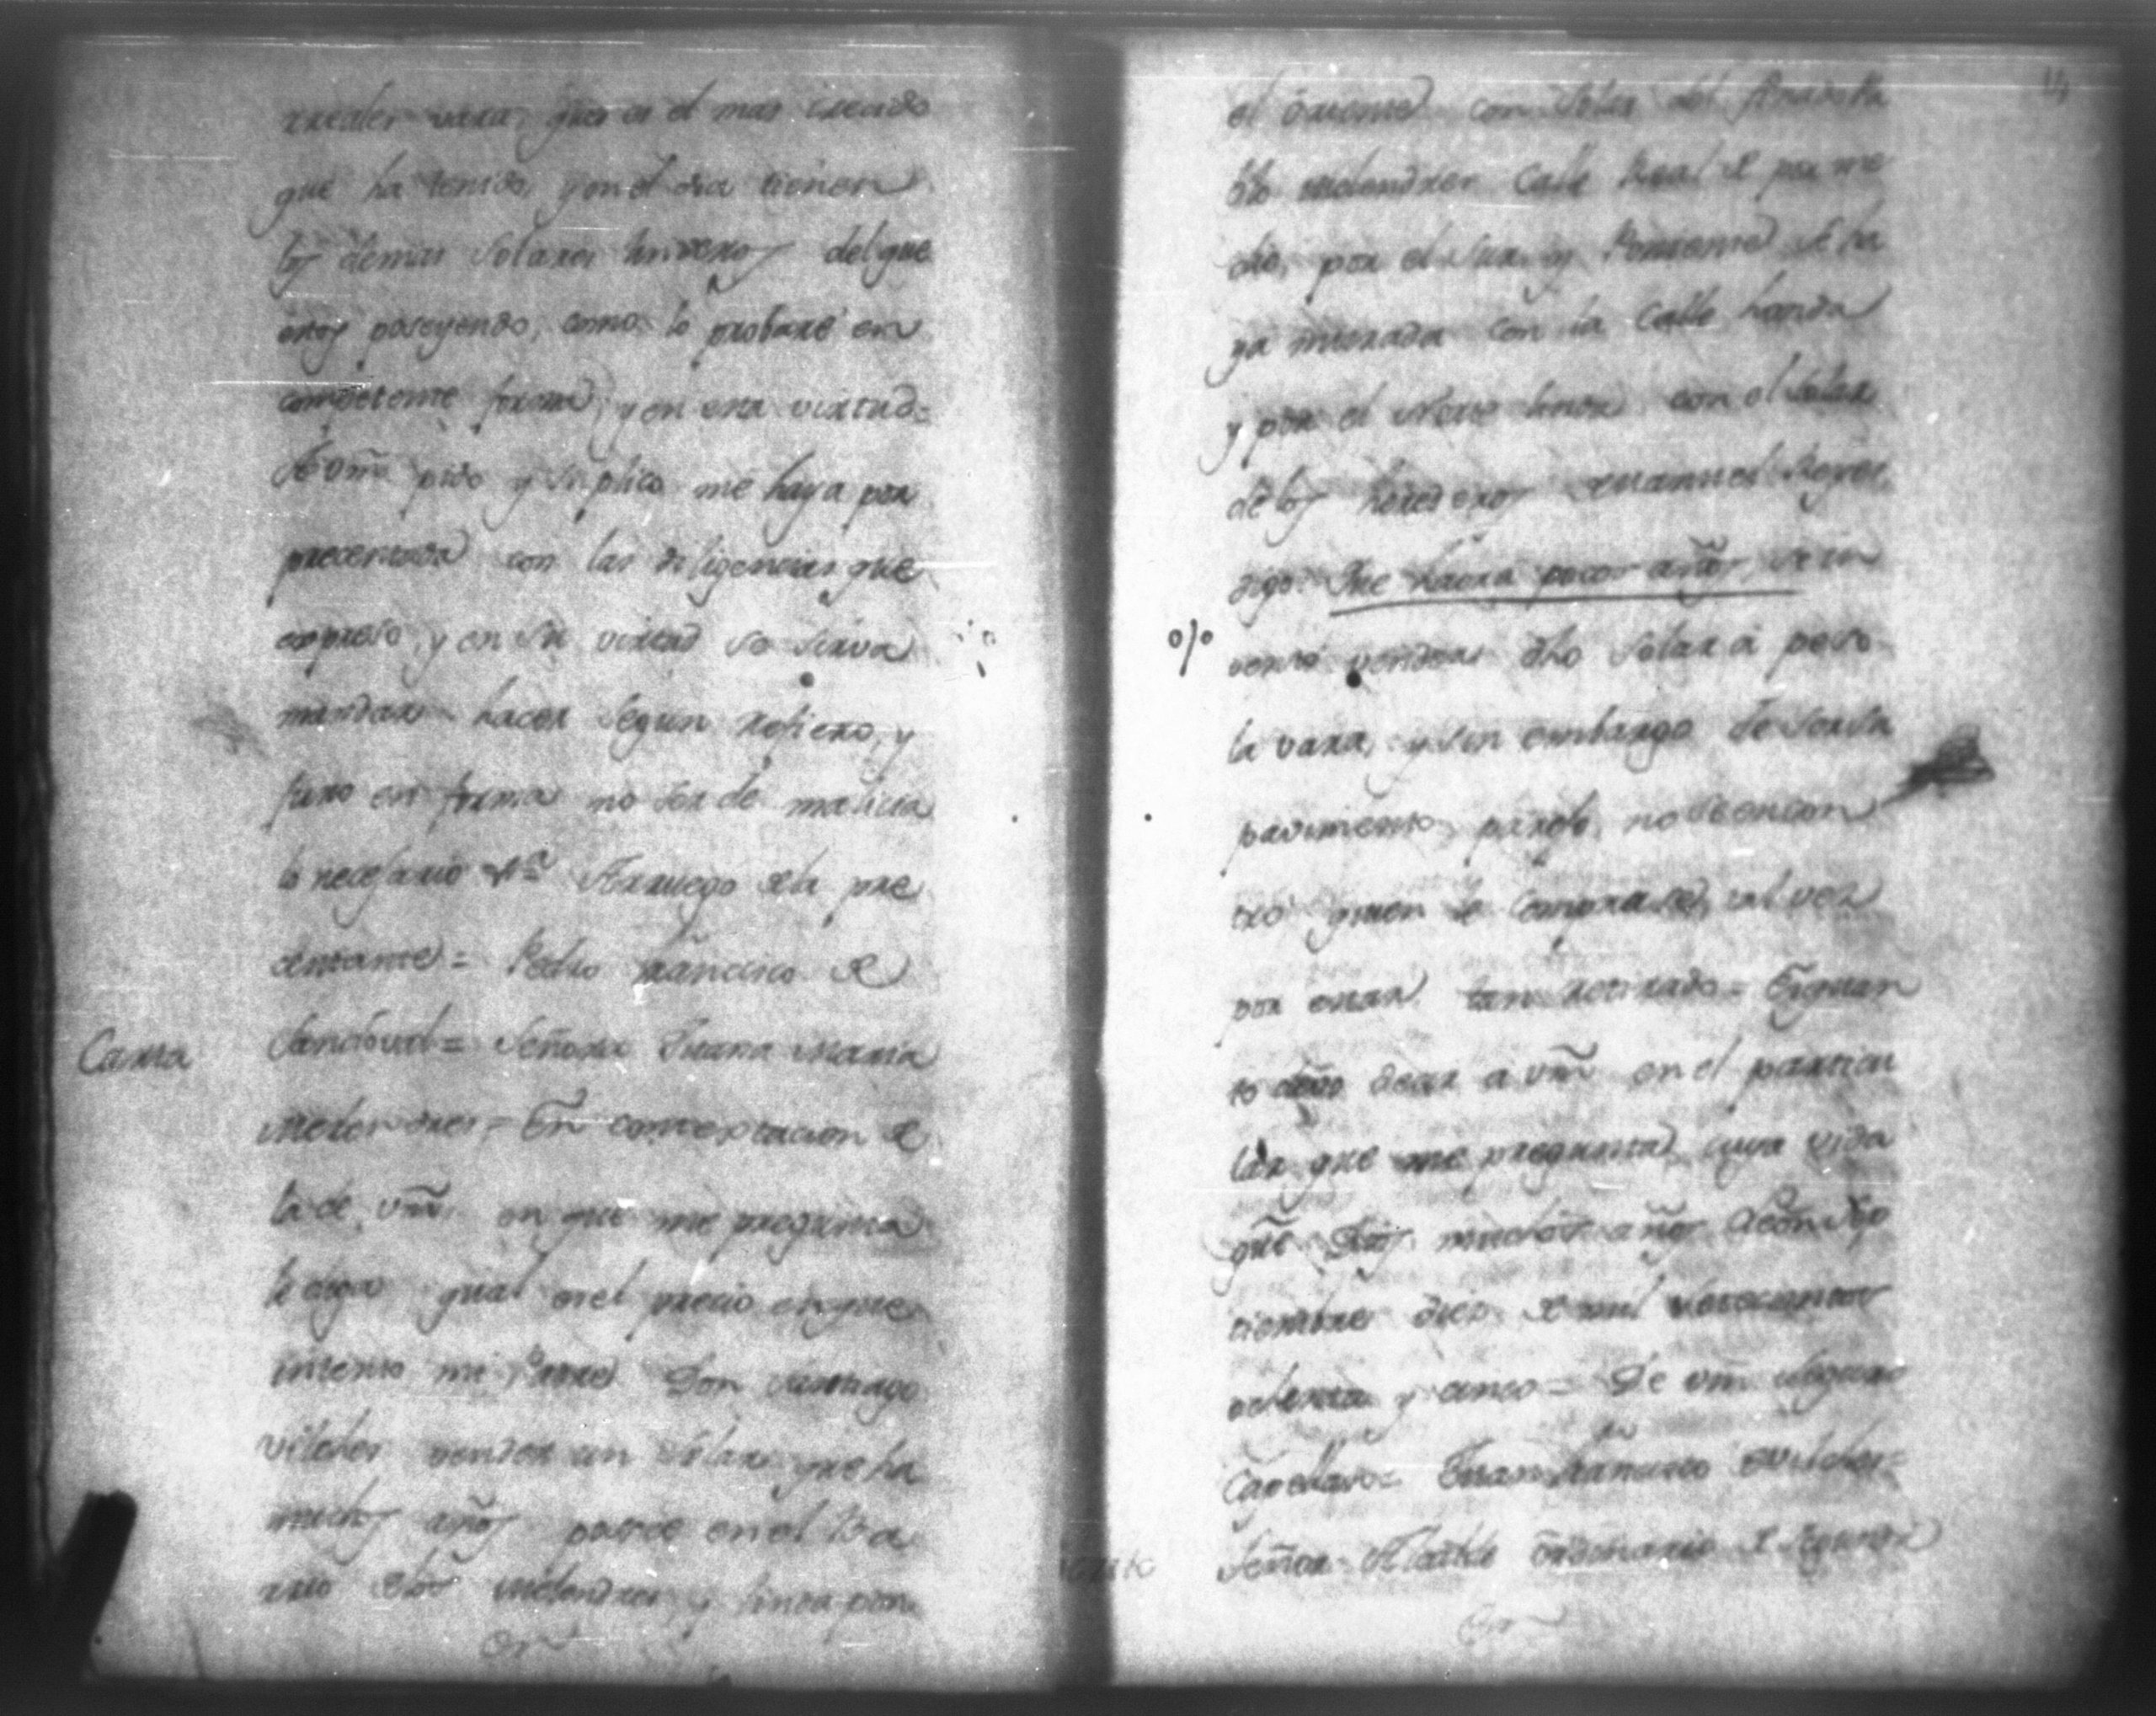 rreales vara, que es el mas crecido
que ha tenido, y en el dia tienen
los demas solares linderos del que
estoy poseyendo, como lo probaré en
competente forma, y en esta virtud=
A Vm̃. pido y suplico me haya por
precentada con las diligencias que
expreso, y en su virtud se sirva
mandar hacer segun refiero, y
juro en forma no ser de malicia
lo necesario Vª Arruego de la pre
centante= Pedro Francisco de
Carta
Sandoval= Señora Juana Maria
Melendres= En contextacion de
la de Vm̃. en que me pregunta
le diga qual es el precio en que
intento mi Padre Don Santiago
Vilches vender un solar que ha
muchos años posee en el Ba
rrio de los Melendres, y linda por
el
el oriente con solar del
dho Melendres Calle Real de por me
dio, por el Sur y Poniente se ha
ya murada con la Calle honda
y por el Norte linda con el solar
de los herederos Manuel Reyes,
digo: Que haora pocos años se in
tentó vender dho solar á peso
la vara, y sin embargo de
no se encon
tró quien le comprase, tal vez
por estar tan retirado= Es quan
to devo decir a Vm̃ en el particu
lar que me pregunta, cuya vida
gũe Dios muchos años
tiembre diez de mil setecientos
ochenta y cinco= De Vm̃ seguro
Capellan= Juan Francisco Vilches=
Señor Alcalde ordinario de segundo